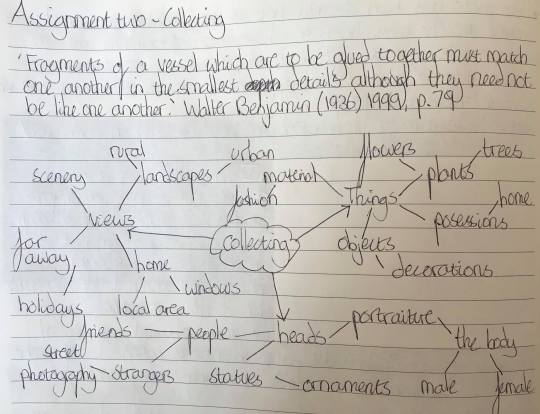 Assignment two - Collecting
'Fragments of a vessel which are to be glued together must match
one another in the smallest details although they need not
be like one another.' Walter Benjamin (1936) 1999, p.79
rural
urban
flowers
trees
scenery
landscapes
material
plants
fashion
Things
home
views
Collecting
posessions
far
away
home
objects
windows
decorations
holidays
local area
friends
people
heads
portraiture
the body
street
photography
strangers
statues
ornaments
male
female